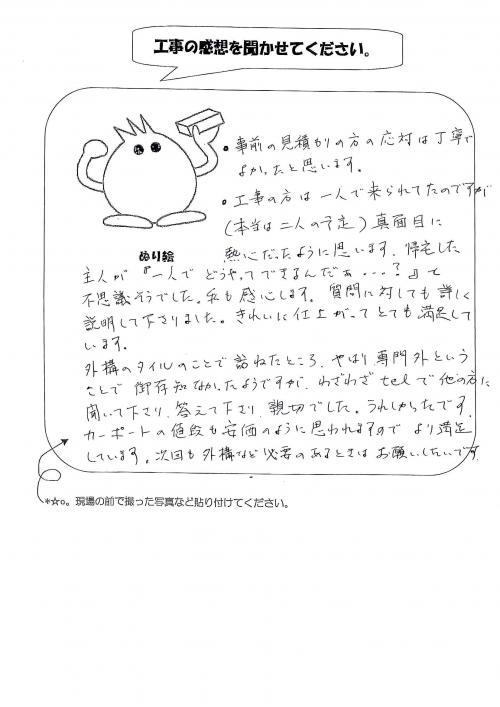 工事の感想を聞かせてください。
• 事前の見積かりの方の応対は丁寧で
よかったと思います。
• 工事の方は一人で来られてたのですが
(本当は二人の予定)真面目に
ぬり絵
熱心だったように思います。帰宅した
主人が『一人でどうやってできるんだぁ…?』と
不思議そうでした。私も感心します。質問に対しても詳しく
説明して下さりました。きれいに仕上がってとても満足して
います。
外構のタイルのことで訪ねたところ、やはり専門外という
ことで御存知なかったようですが、わざわざtelで他の方に
聞いて下さり、答えて下さり、親切でした。うれしかったです。
カーポートの値段も安価のように思われますのでより満足
しています。次回も外構など必要のあるときはお願いしたいです。
*☆○。現場の前で撮った写真など貼り付けてください。